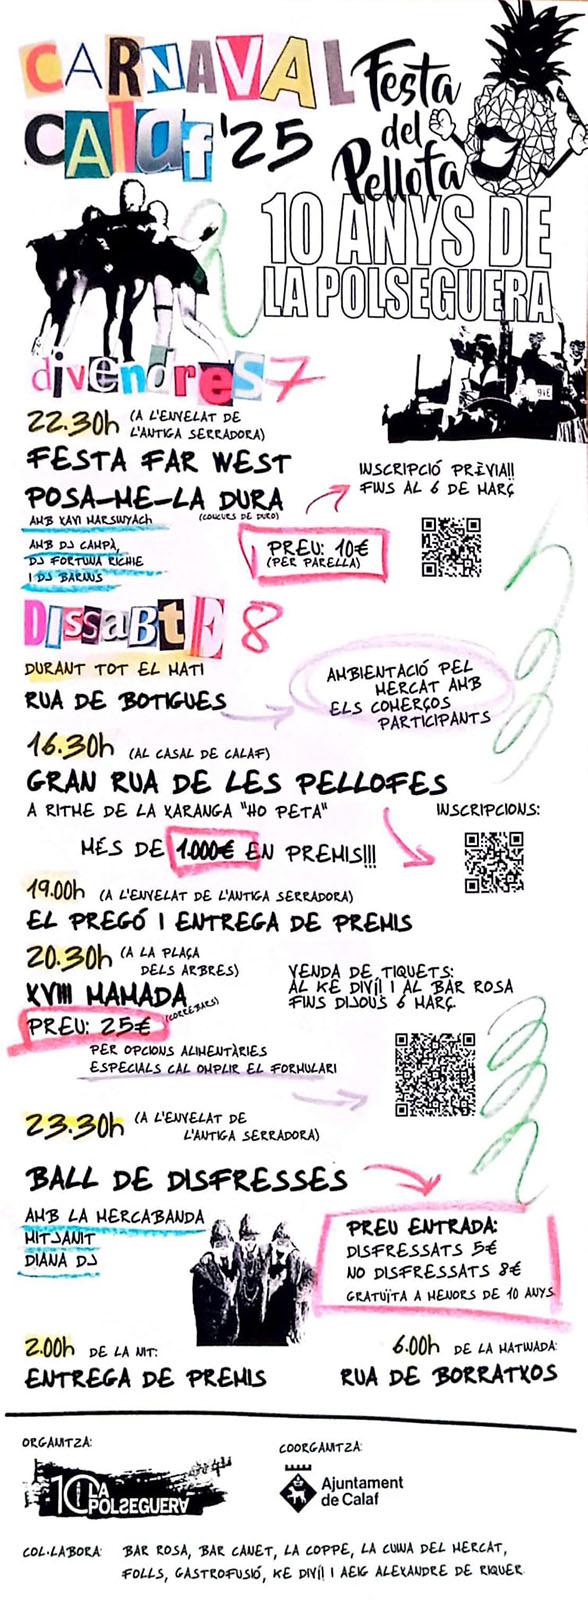 CARNAVAL
CALAf '25
Festa
del
Pellofa
10 ANYS DE
LA POLSEGUERA
divendres 7
22.30h (A L'ENVELAT DE
L'ANTIGA SERRADORA)
FESTA FAR WEST
POSA-ME-LA DURA
(CONCURS DE DURO)
AMB XAVI MARSINYACH
AMB DJ CAMPÀ,
DJ FORTUNA RICHIE
I DJ BARNUS
INSCRIPCIÓ PRÈVIA!!
FINS AL 6 DE MARÇ
PREU: 10€
(PER PARELLA)
DISSABTE 8
DURANT TOT EL MATI
RUA DE BOTIGUES
AMBIENTACIÓ PEL
MERCAT AMB
ELS COMERÇOS
PARTICIPANTS
16.30h (AL CASAL DE CALAF)
GRAN RUA DE LES PELLOFES
A RITME DE LA XARANGA "HO PETA"
INSCRIPCIONS:
MÉS DE 1.000€ EN PREMIS!!!
19.00h (A L'ENVELAT DE L'ANTIGA SERRADORA)
EL PREGÓ I ENTREGA DE PREMIS
20.30h (A LA PLAÇA
DELS ARBRES)
XVIII MAMADA
(CORREBARS)
PREU: 25€
VENDA DE TIQUETS:
AL KE DIVÍI I AL BAR ROSA
FINS DIJOUS 6 MARÇ
PER OPCIONS ALIMENTÀRIES
ESPECIALS CAL OMPLIR EL FORMULARI
23.30h (A L'ENVELAT DE
L'ANTIGA SERRADORA)
BALL DE DISFRESSES
AMB LA MERCABANDA
MITJANIT
DIANA DJ
PREU ENTRADA:
DISFRESSATS 5€
NO DISFRESSATS 8€
GRATUÏTA A MENORS DE 10 ANYS
2.00h DE LA NIT:
ENTREGA DE PREMIS
6.00h DE LA MATINADA:
RUA DE BORRATXOS
ORGANITZA:
10 LA
POLSEGUERA
COORGANITZA:
Ajuntament
de Calaf
COL·LABORA: BAR ROSA, BAR CANET, LA COPPE, LA CUINA DEL MERCAT,
FOLLS, GASTROFUSIÓ, KE DIVÍI I AEIG ALEXANDRE DE RIQUER